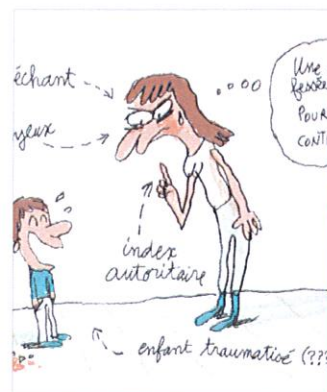 échant
yeux
Une
fessée
POUR
CONT
index
autoritaire
enfant traumatisé (???